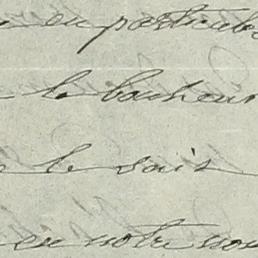 en particul
le bonheur
le sais
en notre nou